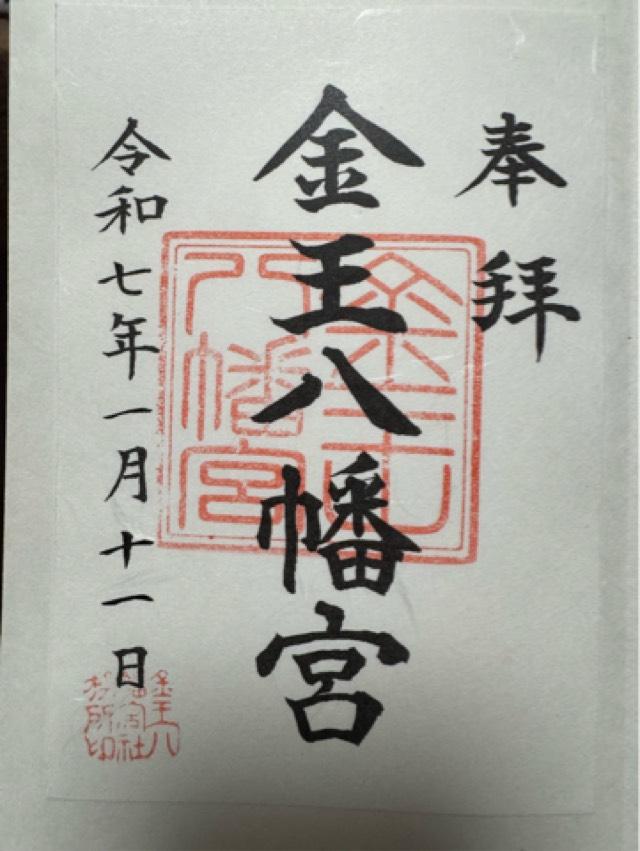 奉拝
金王八幡宮
令和七年一月十一日
金王八幡宮
金王八幡宮社務所印